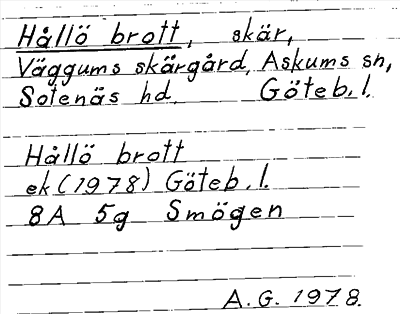 Hållö brott, skär,
Väggums skärgård, Askums sn,
Sotenäs hd. Göteb. l.
Hållö brott
ek (1978) Göteb. l.
8A 5g Smögen
A. G. 1978.